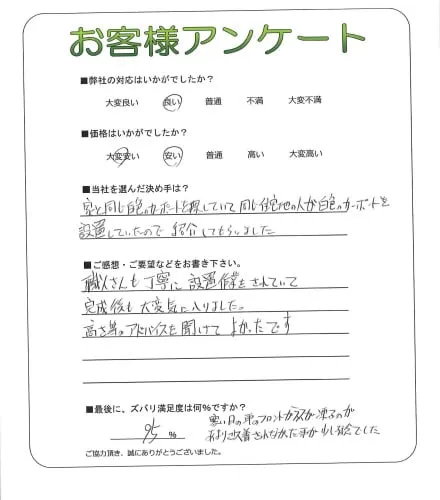 お客様アンケート
■弊社の対応はいかがでしたか?
大変良い 良い 普通 不満 大変不満
■価格はいかがでしたか?
大変安い 安い 普通 高い 大変高い
■当社を選んだ決め手は?
家と同じ白色のカーポートを探していて同じ住宅地の人が白色のカーポートを
設置していたので紹介してもらいました
■ご感想・ご要望などをお書き下さい。
職人さんも丁寧に設置作業をされていて
完成後も大変気に入りました。
高さ等のアドバイスを聞けてよかったです
■最後に、ズバリ満足度は何%ですか?
95 %
寒い日の車のフロントガラスが凍るのが
あまり改善されなかった事が少し残念でした
ご協力頂き、誠にありがとうございました。